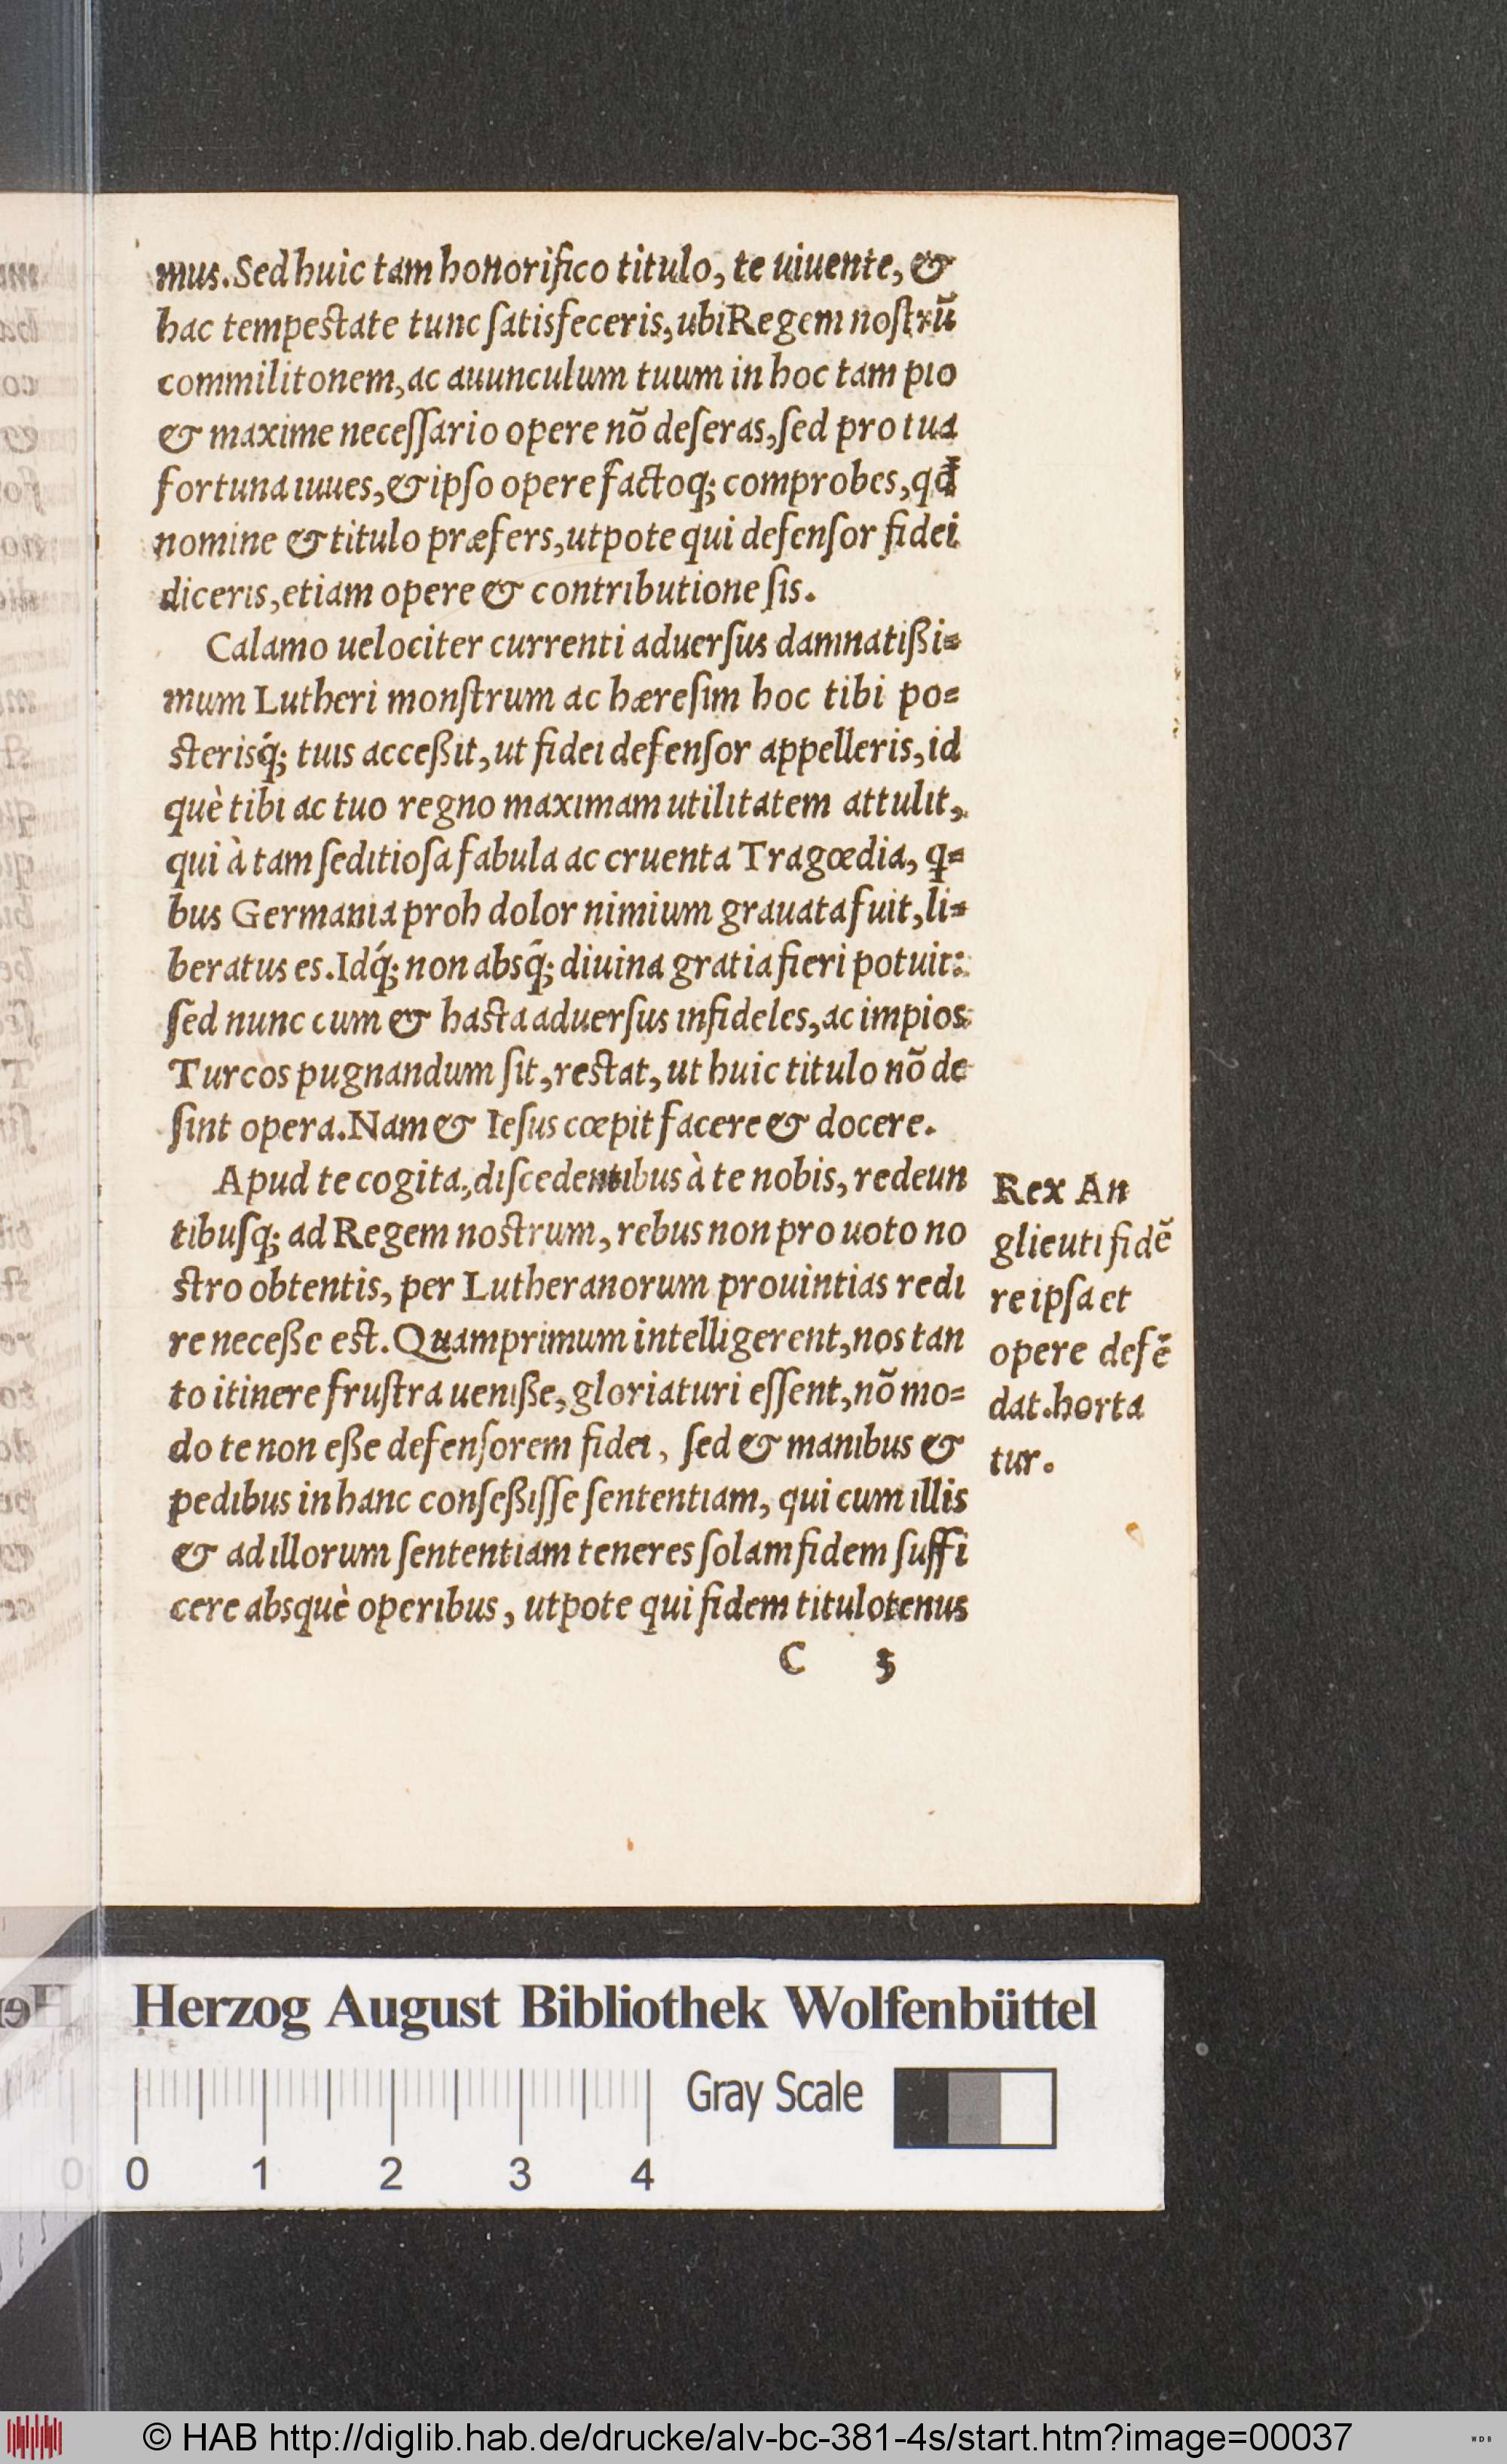 mus. Sed huic tam honorifico titulo, te uiuente, &
hac tempestate tunc ſatisfeceris, ubi Regem noſtrū
commilitonem, ac auunculum tuum in hoc tam pio
& maxime neceſſario opere nō deſeras, ſed pro tua
fortuna iuues, & ipſo opere factoq; comprobes, qd
nomine & titulo præfers, utpote qui defenſor fidei
diceris, etiam opere & contributione ſis.
Calamo uelociter currenti aduerſus damnatißi=
mum Lutheri monſtrum ac hæreſim hoc tibi po=
sterisq́; tuis acceßit, ut fidei defenſor appelleris, id
què tibi ac tuo regno maximam utilitatem attulit,
qui à tam ſeditioſa fabula ac cruenta Tragœdia, q=
bus Germania proh dolor nimium grauata fuit, li=
beratus es. Idq́; non absq́; diuina gratia fieri potuit:
ſed nunc cum & hasta aduerſus infideles, ac impios
Turcos pugnandum ſit, restat, ut huic titulo nō de
ſint opera. Nam & Ieſus cœpit facere & docere.
Apud te cogita, diſcedentibus à te nobis, redeun
tibuſq; ad Regem nostrum, rebus non pro uoto no
stro obtentis, per Lutheranorum prouintias redi
re neceße est. Quamprimum intelligerent, nos tan
to itinere fruſtra ueniße, gloriaturi eſſent, nō mo=
do te non eße defenſorem fidei, ſed & manibus &
pedibus in hanc conſeßiſſe ſententiam, qui cum illis
& ad illorum ſententiam teneres ſolam fidem ſuffi
cere absquè operibus, utpote qui fidem titulotenus
C 3
Rex An
glie uti fidē
re ipſa et
opere defē
dat. horta
tur.
Herzog August Bibliothek Wolfenbüttel
Gray Scale
0 1 2 3 4
© HAB http://diglib.hab.de/drucke/alv-bc-381-4s/start.htm?image=00037
WDB